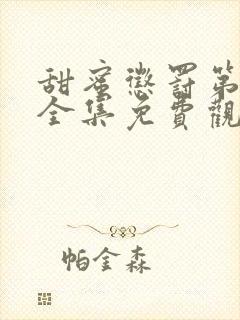 甜蜜懲罰第
全集免費觀
帕金森